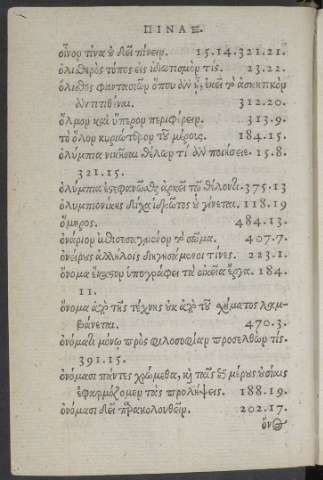 ΠΙΝΑΞ.
οἴνου τίνα οὐ δεῖ πίνειν. 15.14.321.21.
ὀλισθηρὸς τόπος εἰς ἰδιωτισμὸν τίς. 23.22.
ὄλισθος φαντασιῶν ὅπου ἂν ᾖ, ἐκεῖ τὸ ἀσκητικὸν
ἀντιτιθέναι. 312.20.
ὅλμον καὶ ὕπερον περιφέρειν. 313.9.
τὸ ὅλον κυριώτερον τοῦ μέρους. 184.15.
ὀλύμπια νικῆσαι θέλων τί ἂν ποιήσειε. 15.8.
321.15.
ὀλύμπια ἐστεφανῶσθαι ἀρκεῖ τῷ θέλοντι. 375.13
ὀλυμπιονίκης δίχα ἱδρῶτος οὐ γίνεται. 118.19
ὅμηρος. 484.13.
ὀνάριον τὸ σῶμα. 407.7.
ὀνείρους ἀλλήλοις διηγησάμενοι τίνες. 223.1.
ὄνομα ἕκαστον ὑπογράφει τὰ οἰκεῖα ἔργα. 184.
11.
ὄνομα ἀπὸ τῆς τέχνης οὐκ ἀπὸ τοῦ χήματος λαμ-
βάνεται. 470.3.
ὀνόματι μόνῳ πρὸς φιλοσοφίαν προσελθὼν τίς.
391.15.
ὀνόμασι πάντες χρώμεθα, καὶ ταῖς μέρους οὐσίαις
ἐφαρμόζομεν τὰς προλήψεις. 188.19.
ὀνόμασι δεῖ παρακολουθεῖν. 202.17.
ὄνος